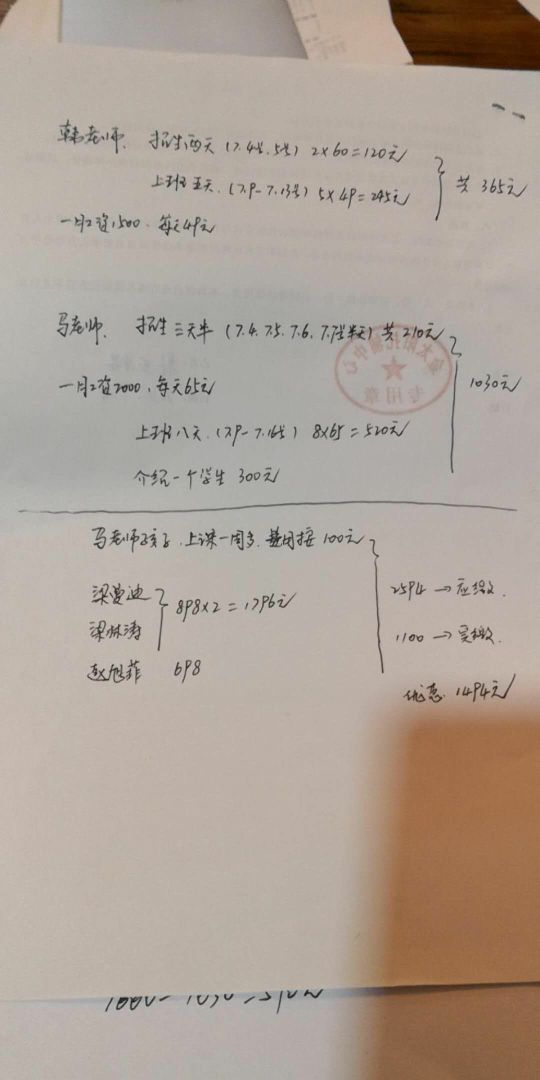 韩老师. 招生两天 (7.4号.5号) 2×60=120元
上班五天. (7.9-7.13号) 5×49=245元
共 365元
一月工资1500. 每天49元
马老师. 招生三天半 (7.4. 7.5. 7.6. 7.7半天) 共210元
1030元
一月工资2000. 每天65元
上班八天. (7.9-7.16号) 8×65=520元
介绍一个学生 300元
专用章
马老师孩子. 上课一周多. 费用按 100元
梁曼迪
898×2=1796元
2594→应缴.
梁林涛
1100→实缴.
赵旭菲 698
优惠. 1494元